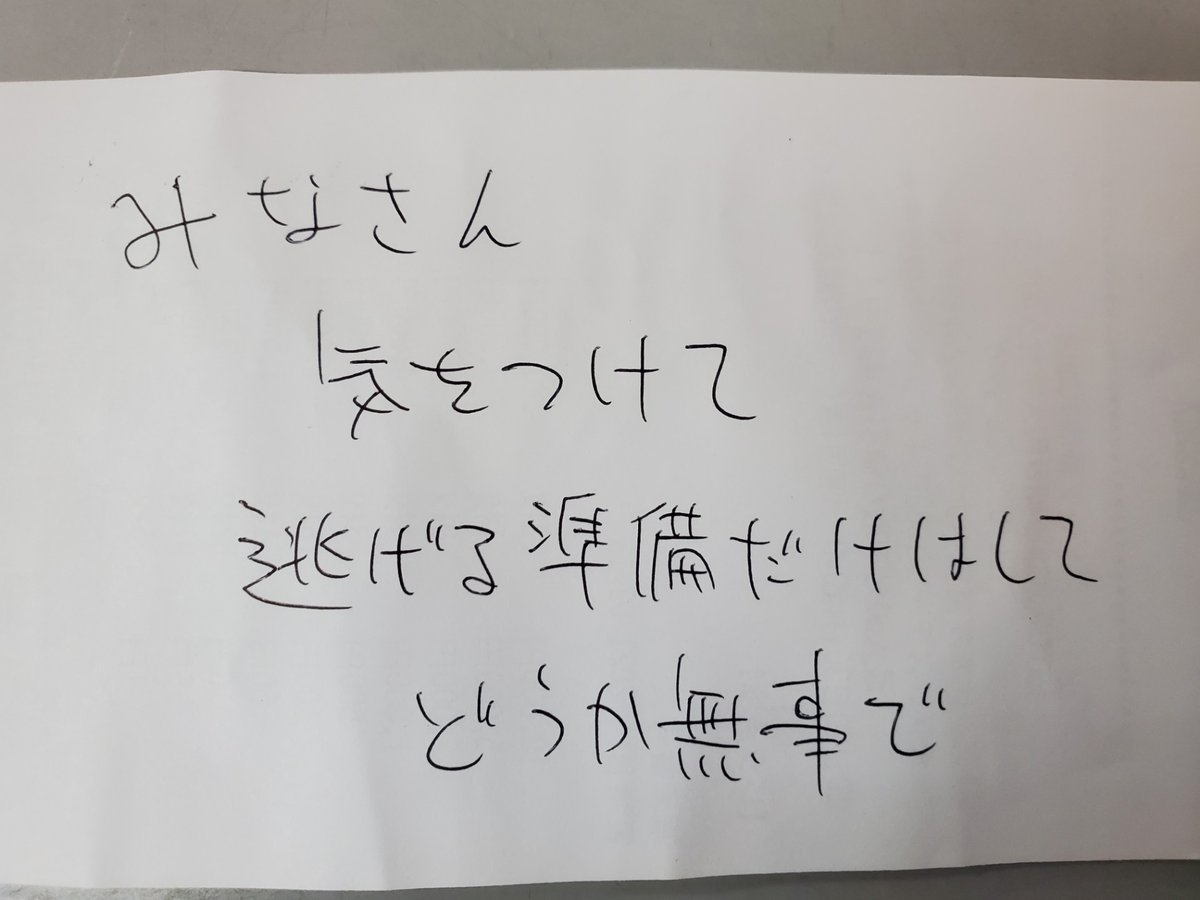 みなさん
気をつけて
逃げる準備だけはして
どうか無事で